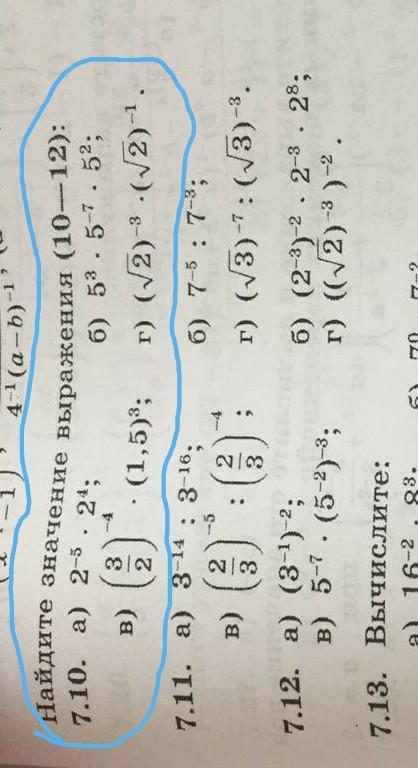 4⁻¹(a−b)⁻¹
Найдите значение выражения (10—12):
7.10. а) 2⁻⁵ · 2⁴; б) 5³ · 5⁻⁷ · 5²;
в) (3/2)⁻⁴ · (1,5)³; г) (√2)⁻³ · (√2)⁻¹.
7.11. а) 3⁻¹⁴ : 3⁻¹⁶; б) 7⁻⁵ : 7⁻³;
в) (2/3)⁻⁵ : (2/3)⁻⁴; г) (√3)⁻⁷ : (√3)⁻³.
7.12. а) (3⁻¹)⁻²; б) (2⁻³)⁻² · 2⁻³ · 2⁸;
в) 5⁻⁷ · (5⁻²)⁻³; г) ((√2)⁻³)⁻².
7.13. Вычислите:
а) 16⁻² · 8³.